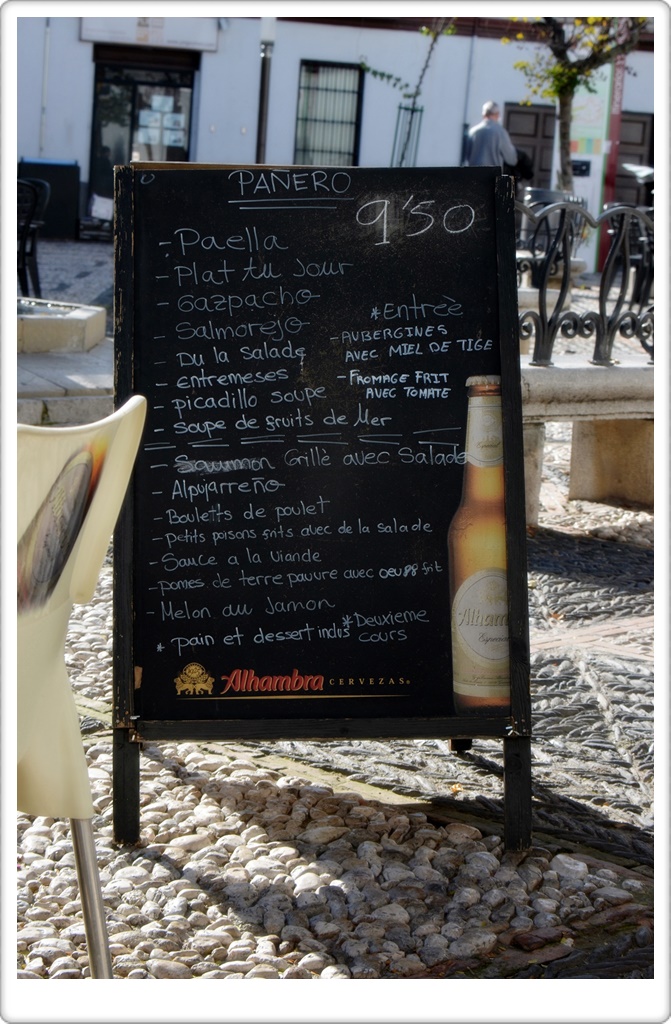 PAÑERO
9'50
- Paella
- Plat Au Jour
- Gazpacho
- Salmorejo
- Du la Salade
- entremeses
- picadillo soupe
- Soupe de fruits de Mer
*Entreè
- AUBERGINES
AVEC MIEL DE TIGE
- FROMAGE FRIT
AVEC TOMATE
- Saummon Grillè avec Salade
- Alpujarreño
- Bouletts de poulet
- petits poisons frits avec de la salade
- Sauce a la viande
- pomes de terre pauvre avec oeugg frit
- Melon au Jamon
* pain et dessert inclus
*Deuxieme
cours
Alhambra CERVEZAS
Alham
Especial